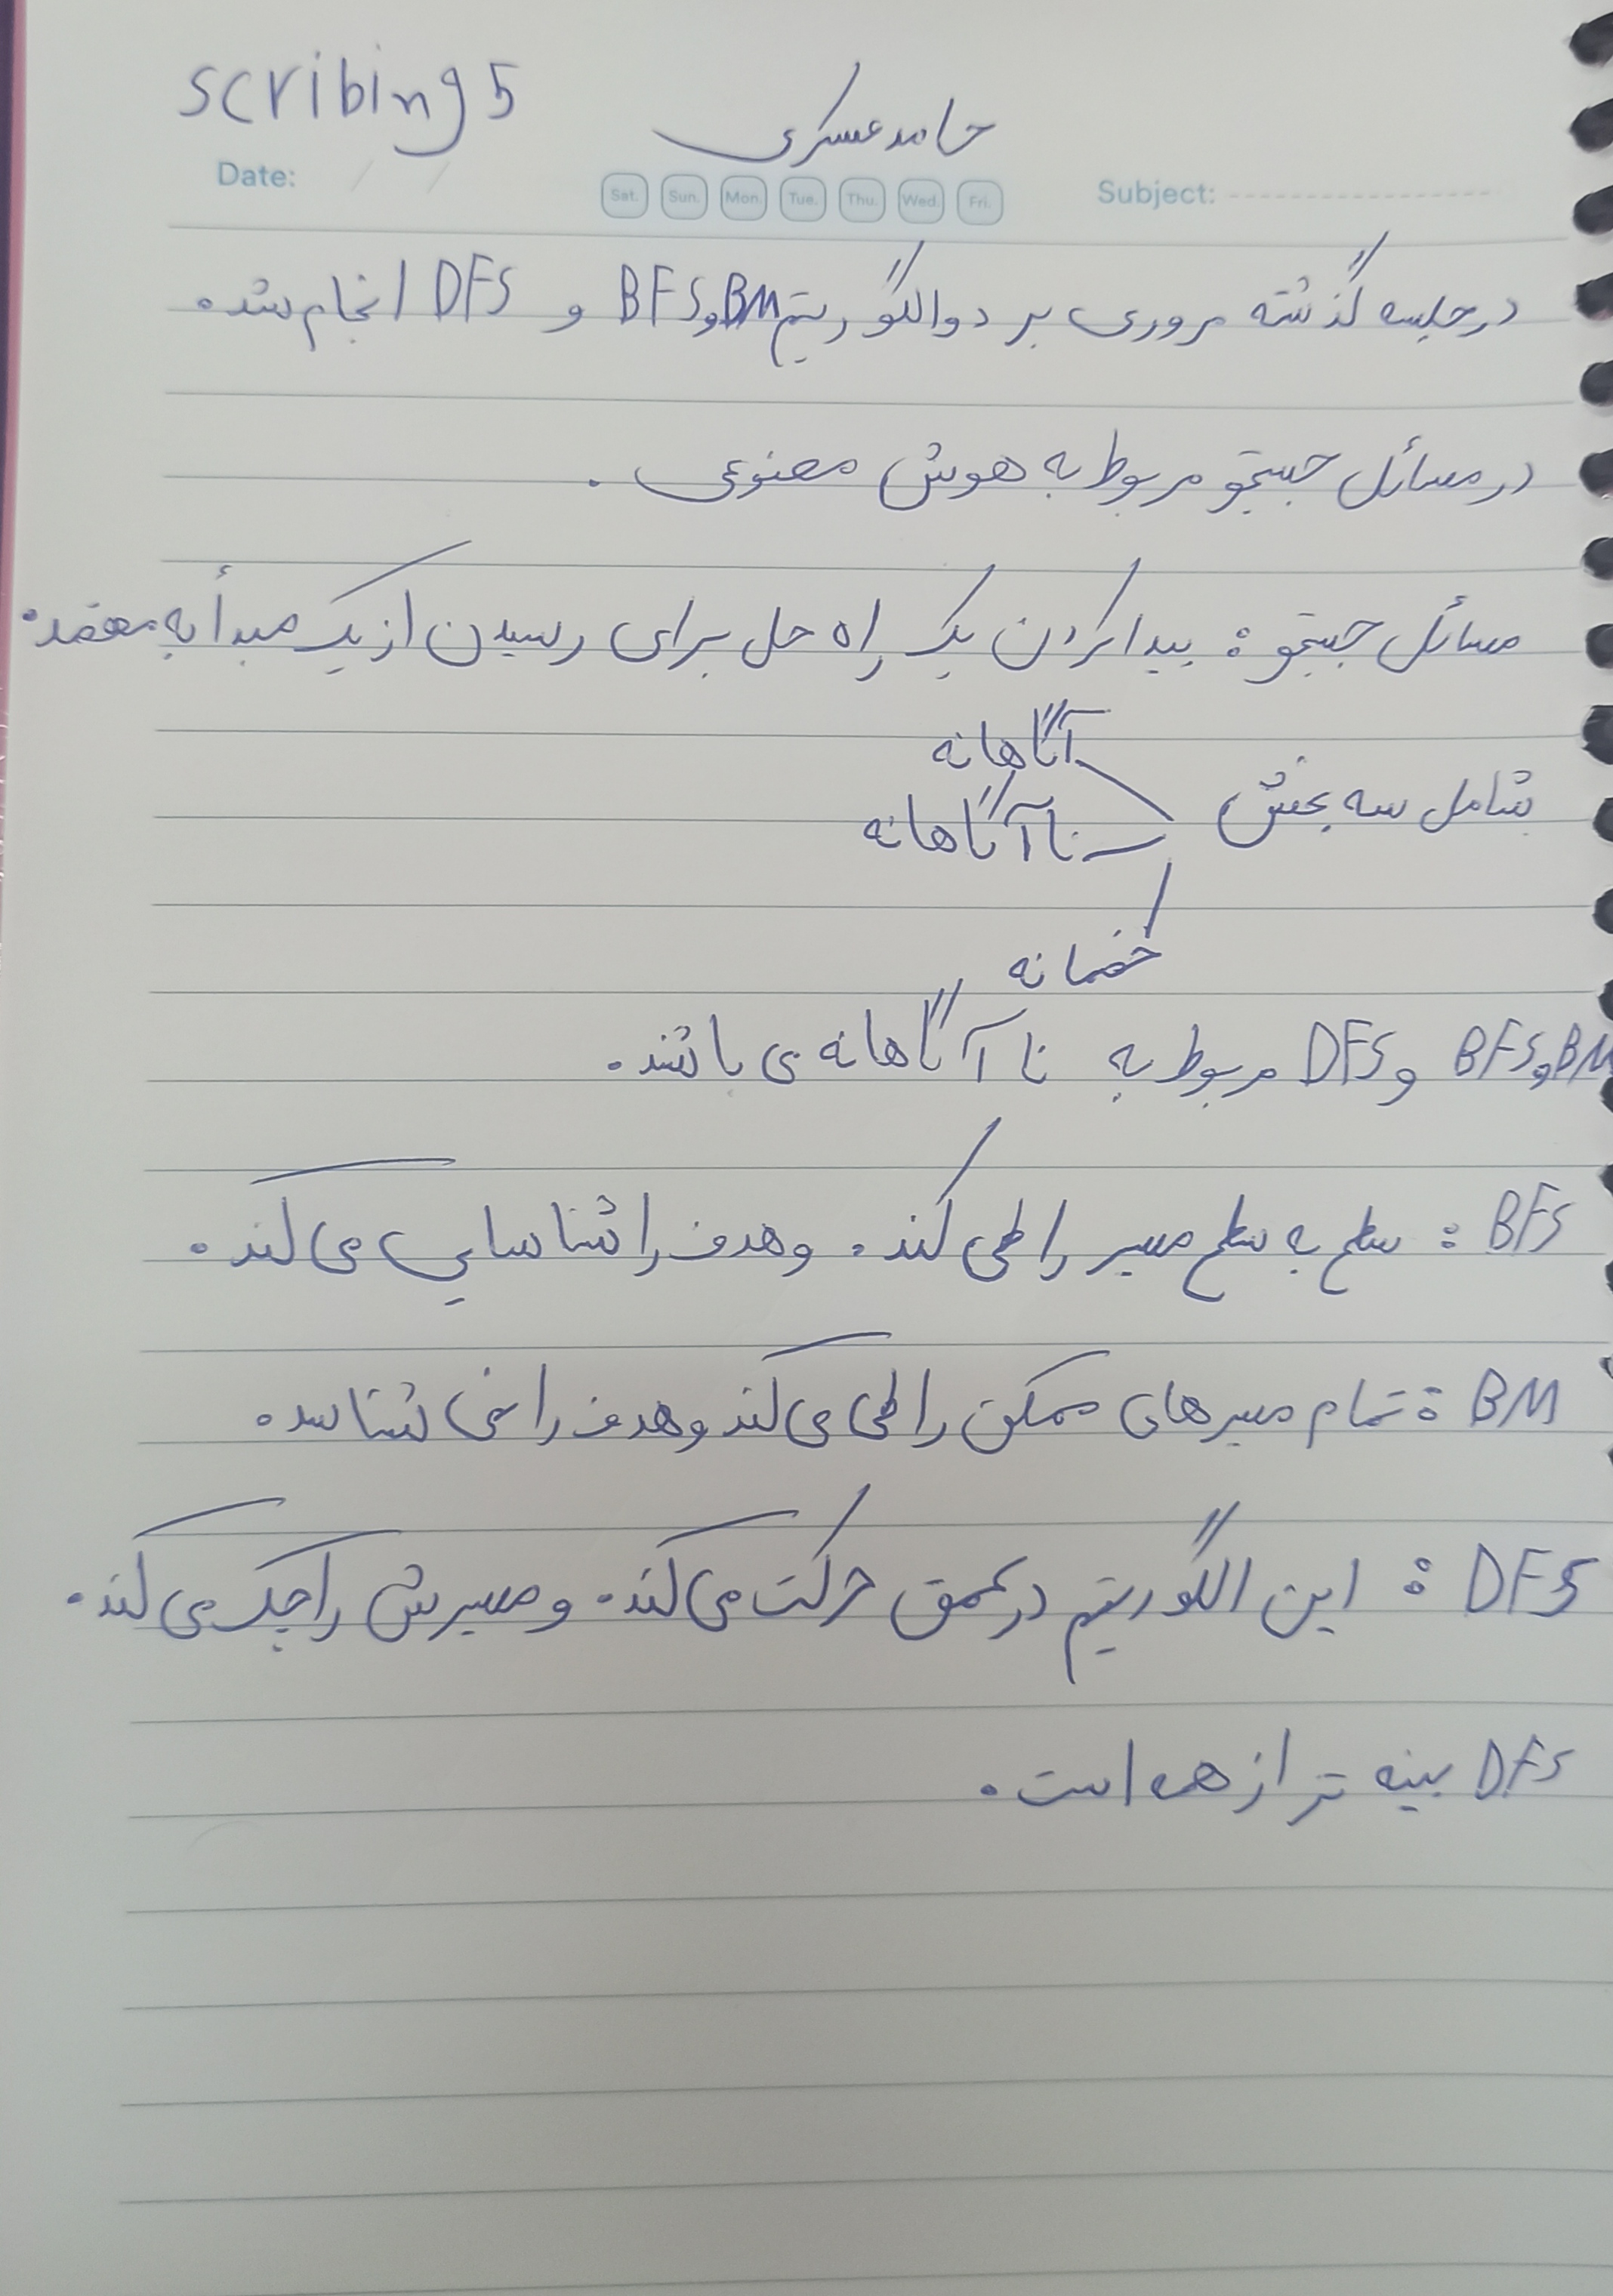 scribing 5
حامد عسکری
Date: / /
Sat. Sun. Mon. Tue. Thu. Wed. Fri.
Subject:
در جلسه گذشته مروری بر دو الگوریتم BM و BFS و DFS انجام شد.
در مسائل جستجو مربوط به هوش مصنوعی.
مسائل جستجو: پیدا کردن یک راه حل برای رسیدن از یک مبدأ به مقصد.
آگاهانه
شامل سه بخش
ناآگاهانه
خصمانه
BM و BFS و DFS مربوط به ناآگاهانه ی باشند.
BFS: سطح به سطح مسیر را طی کند. و هدف را شناسایی می کند.
BM: تمام مسیرهای ممکن را طی می کند و هدف را نمی شناسد.
DFS: این الگوریتم در عمق حرکت می کند. و مسیرش را چک می کند.
DFS بینه تر از همه است.